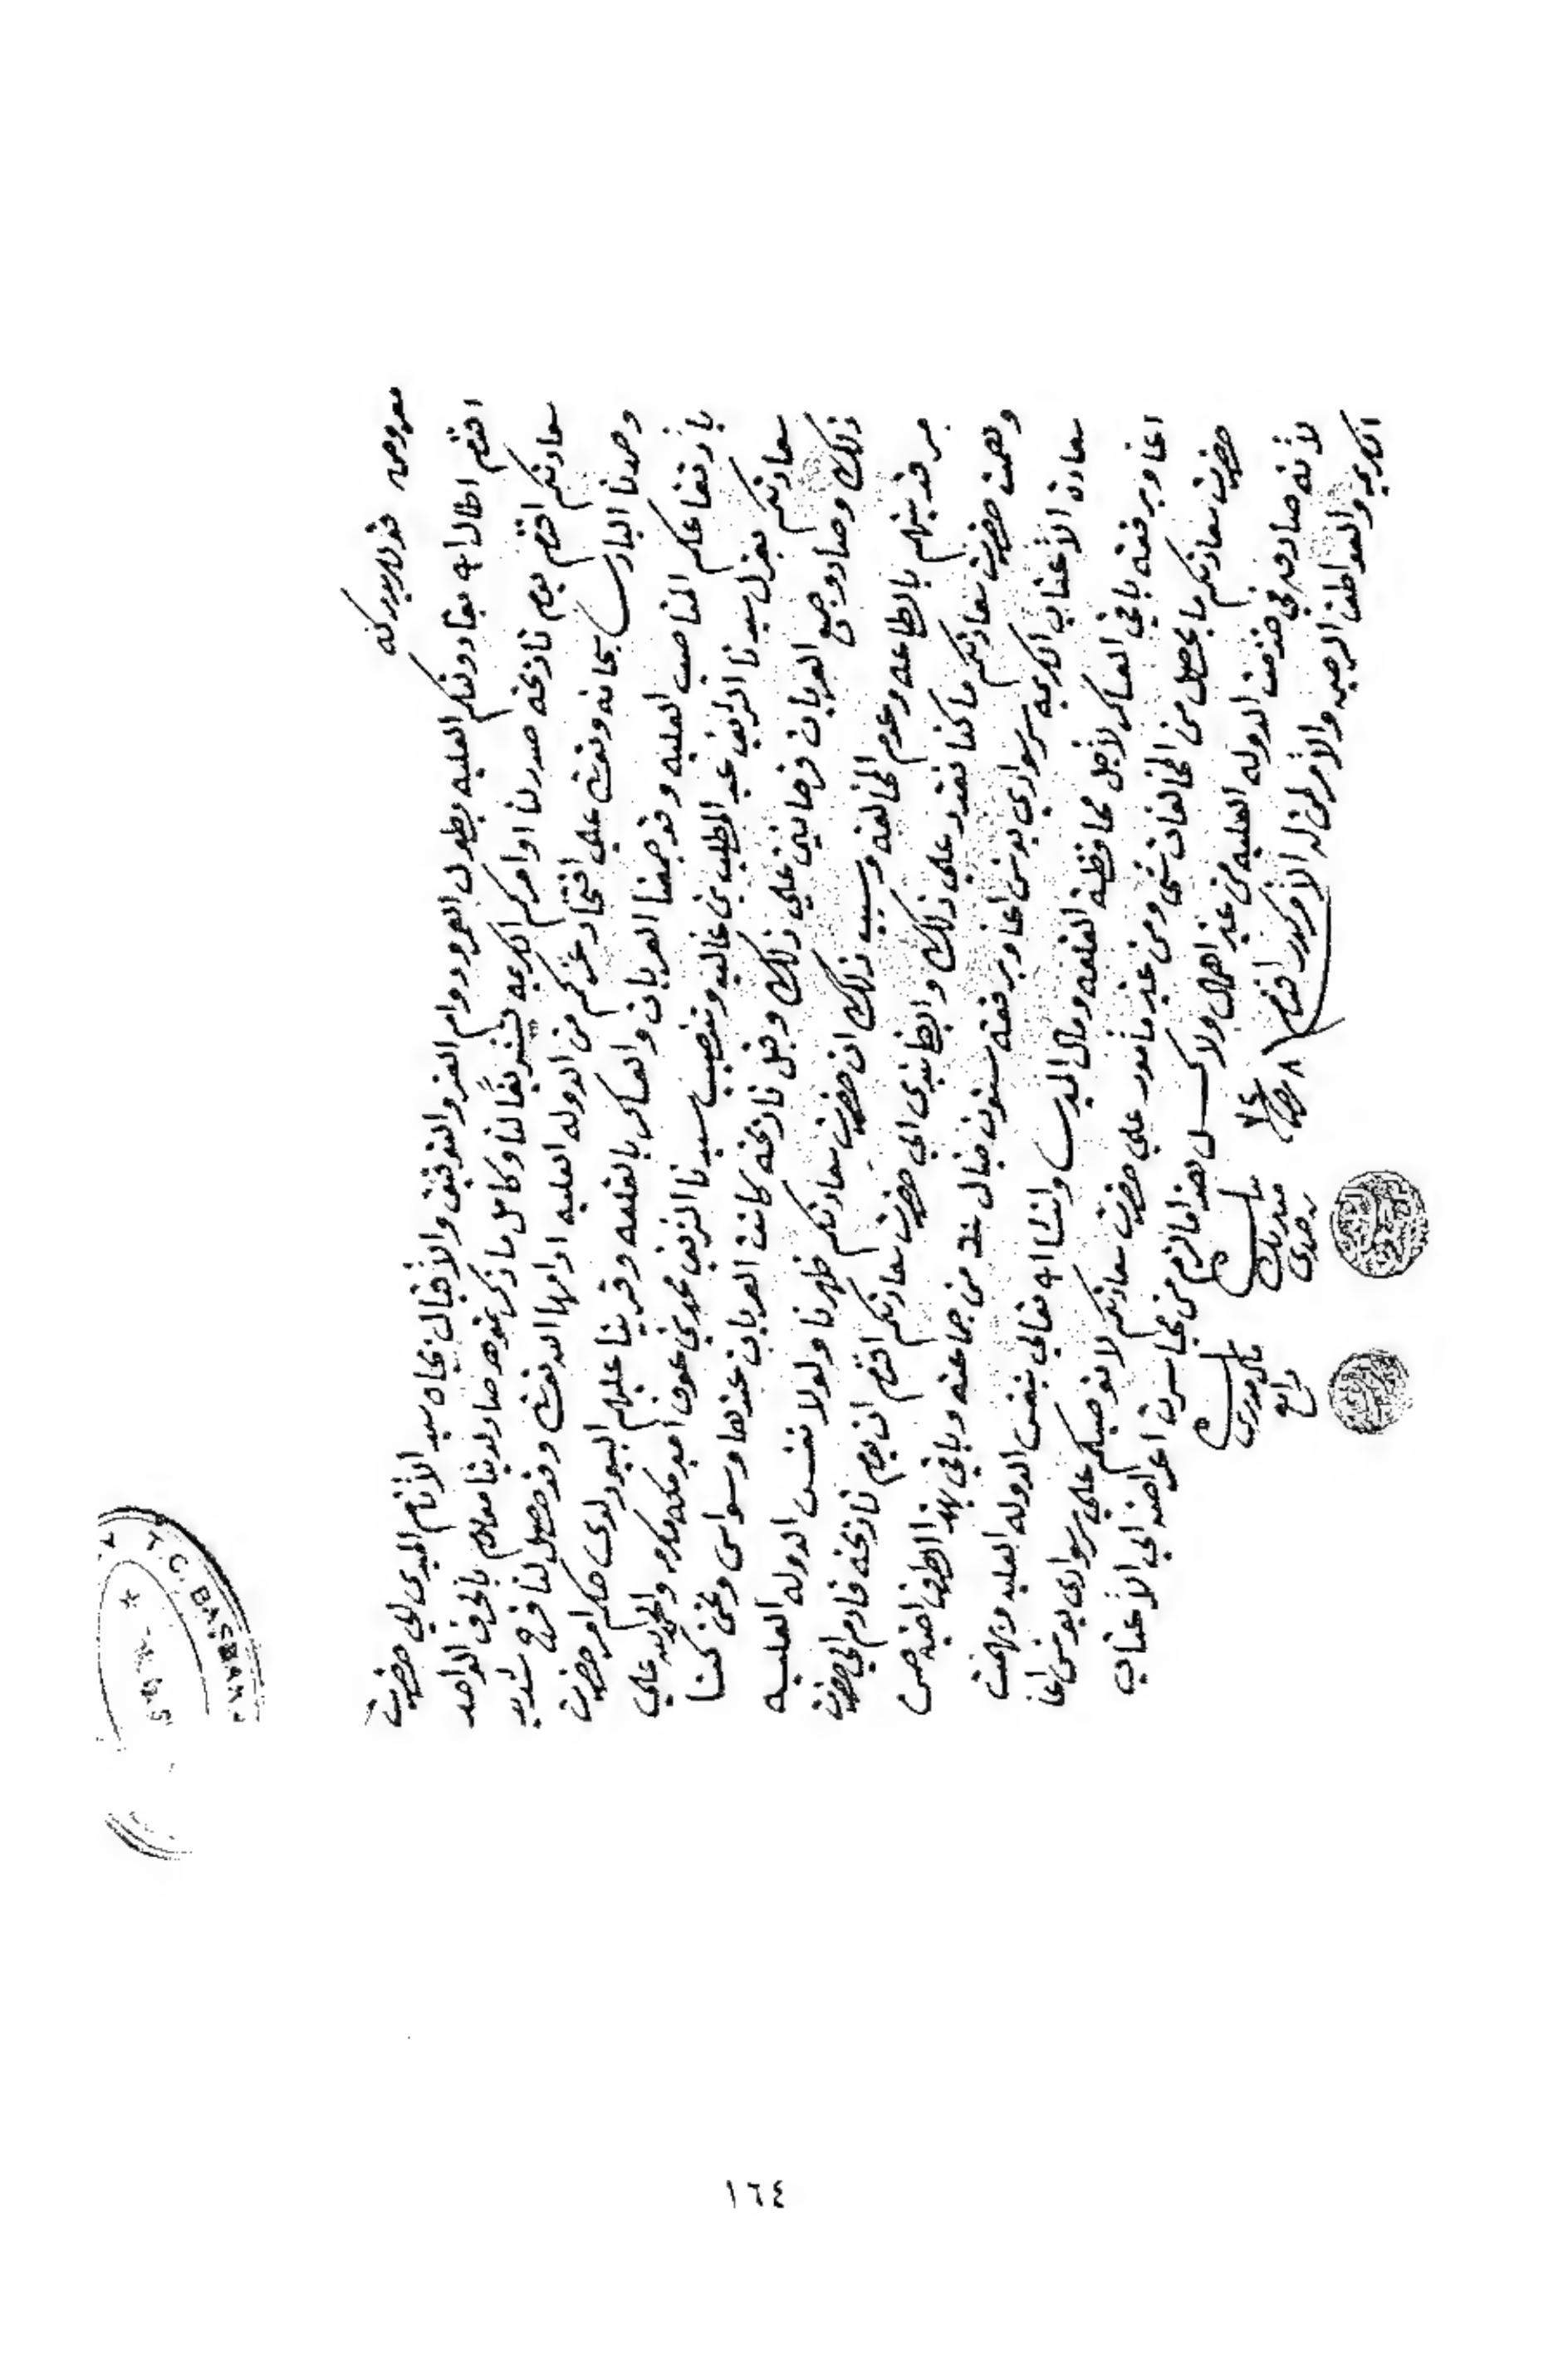 معروض عبدلريدركه
افندم اطال الله بقاء دولتكم العليه بطول العمر ودوام العز والتوفيق والأقبال بجاه سيد الأنام المبدى الى حضرت
سعادتكم افندم يوم تاريخه صدر لنا اوامركم الكريمه تشريفًا لنا وكامل ما ذكرتموه صار لدينا معلوم بالحرف الواحد
وحمدنا البارى سبحانه وتعالى على افتخار عزكم من الدوله العليه ادامها الله تعالى وقد حصل لنا فرح شديد
بأرتفاعكم المناصب العليه وقد جمعنا العربان والعساكر بالقلعه وقرينا عليهم البيورلدى حكم امر حضرت
سعادتكم بعزل سيدنا الشريف عبد المطلب بن غالب وتنصيب سيدنا الشريف محمد بن عون امير مكه مكرمه والحمد لله على
ذلك وصار وجميع العربان فرحانين على ذلك وقبل تاريخه كانت العربان عندها وسواس ونحن كنا
مرقدينهم بالطاعه وعدم المخالفه وسبب ذلك ان حضرت سعادتكم ظهرنا ولولا نفس الدوله العليه
وهمت حضرت سعادتكم ما كنا نقدر على ذلك وايضا نبدى الى حضرت سعادتكم افندم ان يوم تاريخه قادم الى حضرت
سعادة الأعتاب الكريمه سرسوارى يونس اغا وبرفقته ستون خيال من جماعته وباقى بهذا الطرف اخيه حسن
اغا وبرفقته باقى العساكر لأجل محافظة القلعه ومال الميرى وانشا الله تعالى بنفس الدوله العليه وبهمت
حضرت سعادتكم ما يحصل من المخالفات شى ومن غير مأمور على حضرت سعادتكم لا نوصيكم على سرسوارى يونس اغا
لأنه صادق فى خدمت الدوله العليه من غير اهمال ولا كسل هذا ما لزم من تجاسرت اعراضه الى الأعتاب
الكريمه والعواطف الرحيمه والأمر لمن له الأمر كدر افندم ٨
٧٤
بك
مدير
مال مديرى
رابغ
T.C. BAŞBAKANLIK
١٦٤